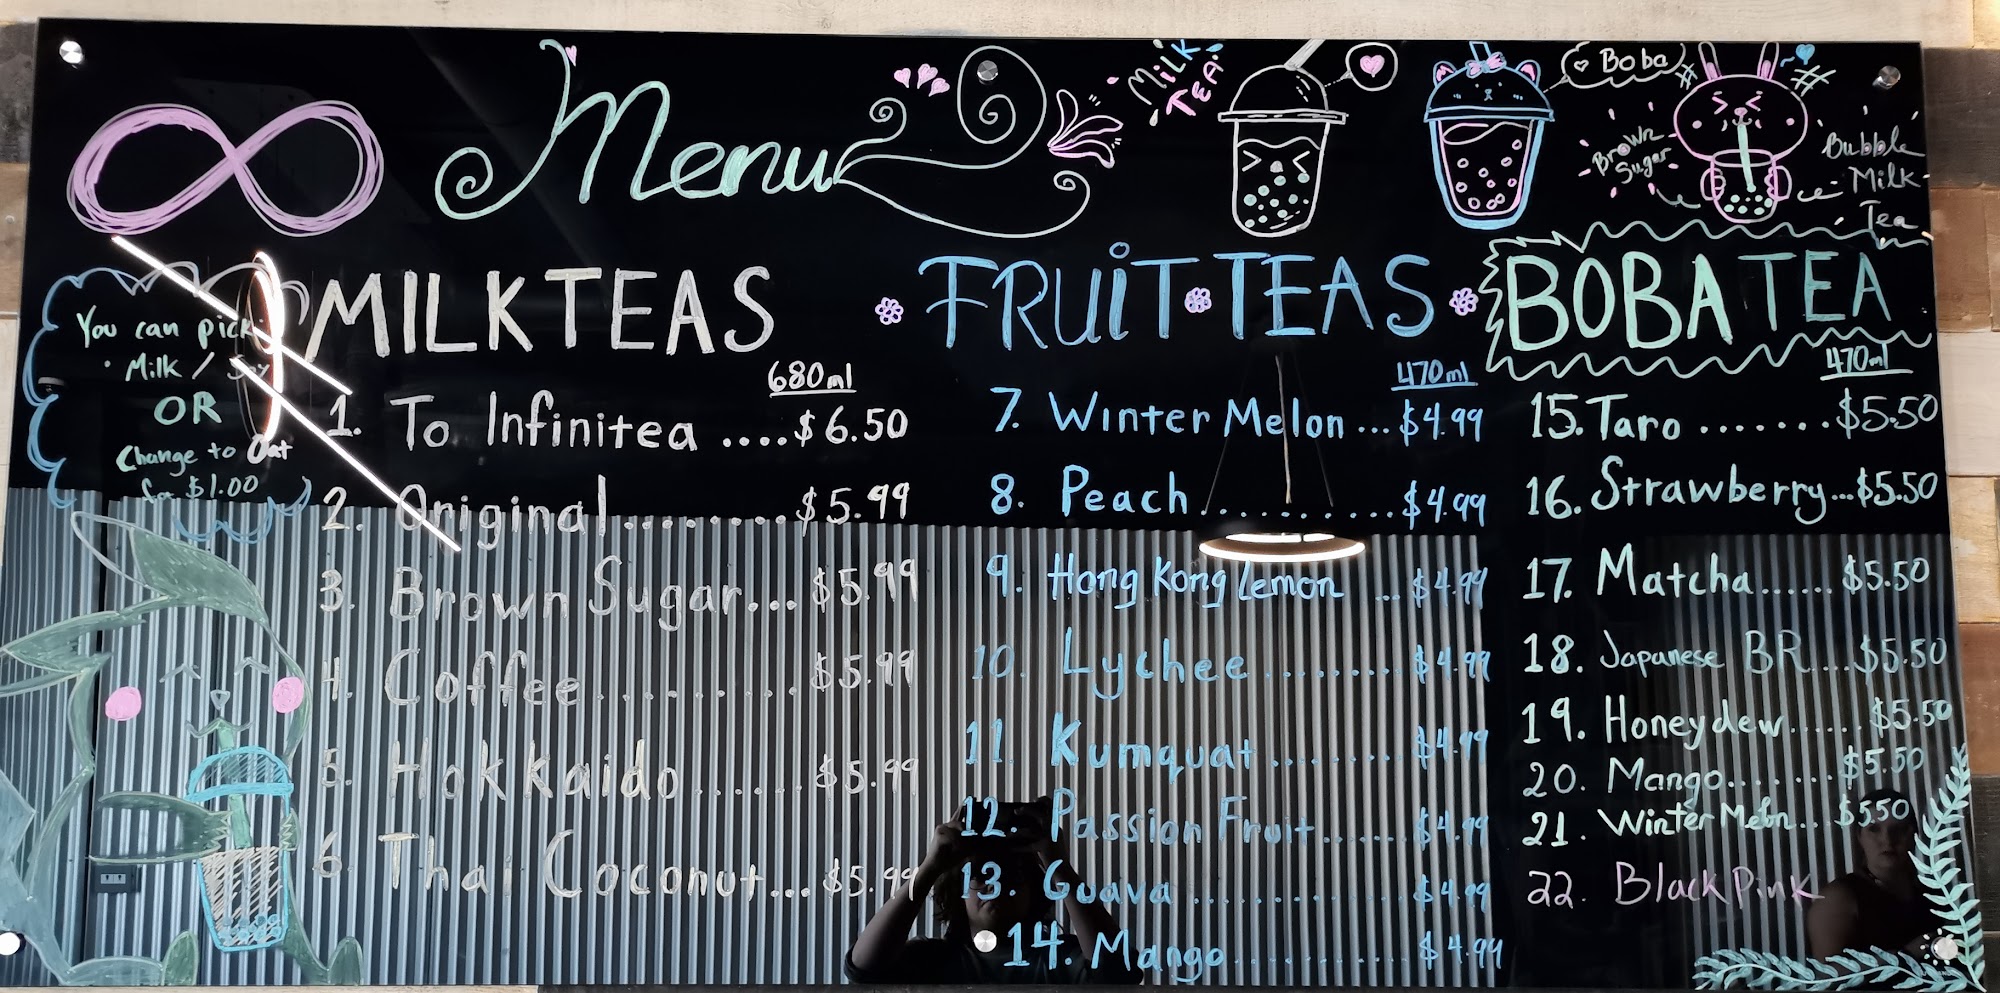 Menu
MiLK
TEA
Boba
BroWn
Sugar
Bubble
Milk
Tea
You can pick:
• Milk / Soy
OR
Change to Oat
for $1.00
MILKTEAS
680ml
1. To Infinitea ....$6.50
2. Original........$5.99
3. Brown Sugar...$5.99
4. Coffee.........$5.99
5. Hokkaido......$5.99
6. Thai Coconut...$5.99
FRUiT TEAS
470ml
7. Winter Melon ...$4.99
8. Peach..........$4.99
9. Hong Kong Lemon ...$4.99
10. Lychee........$4.99
11. Kumquat.......$4.99
12. Passion Fruit......$4.99
13. Guava...........$4.99
14. Mango..........$4.99
BOBA TEA
470ml
15. Taro .......$5.50
16. Strawberry...$5.50
17. Matcha......$5.50
18. Japanese BR....$5.50
19. Honeydew......$5.50
20. Mango.......$5.50
21. Winter Melon...$550
22. Black Pink